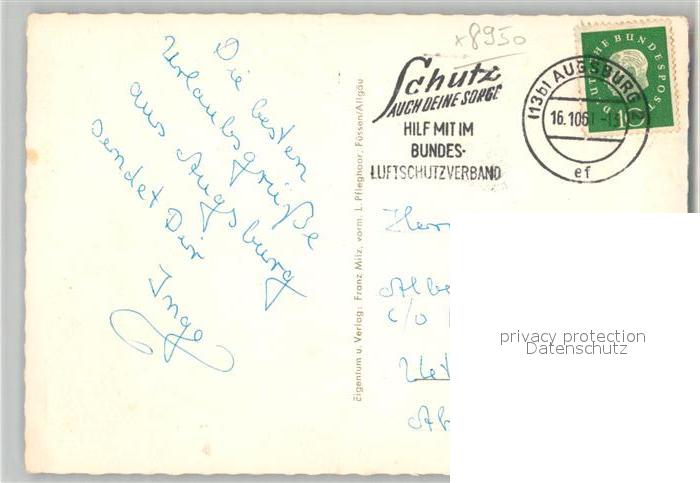 x8950
Schutz
AUCH DEINE SORGE
HILF MIT IM
BUNDES-
LUFTSCHUTZVERBAND
(13b) AUGSBURG 2
16.10.61
ef
DEUTSCHE BUNDESPOST
10
Die besten
Urlaubsgrüße
aus Augsburg
sendet Dir
Inge
Eigentum u. Verlag: Franz Milz, vorm. L. Pfleghaar, Füssen/Allgäu
Herr
Albe
c/o
privacy protection
Datenschutz